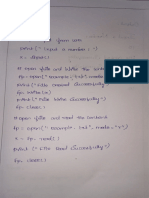 print(" input a number : ")
x = input()
# open file and write the content
fp = open("example.txt", mode=
print("File opened successfully")
fp. write(x)
print("File successfully")
fp. close()
# open file and read the content
fp = open("example.txt", mode="r")
x = fp. read()
print("File read successfully")
fp. close()